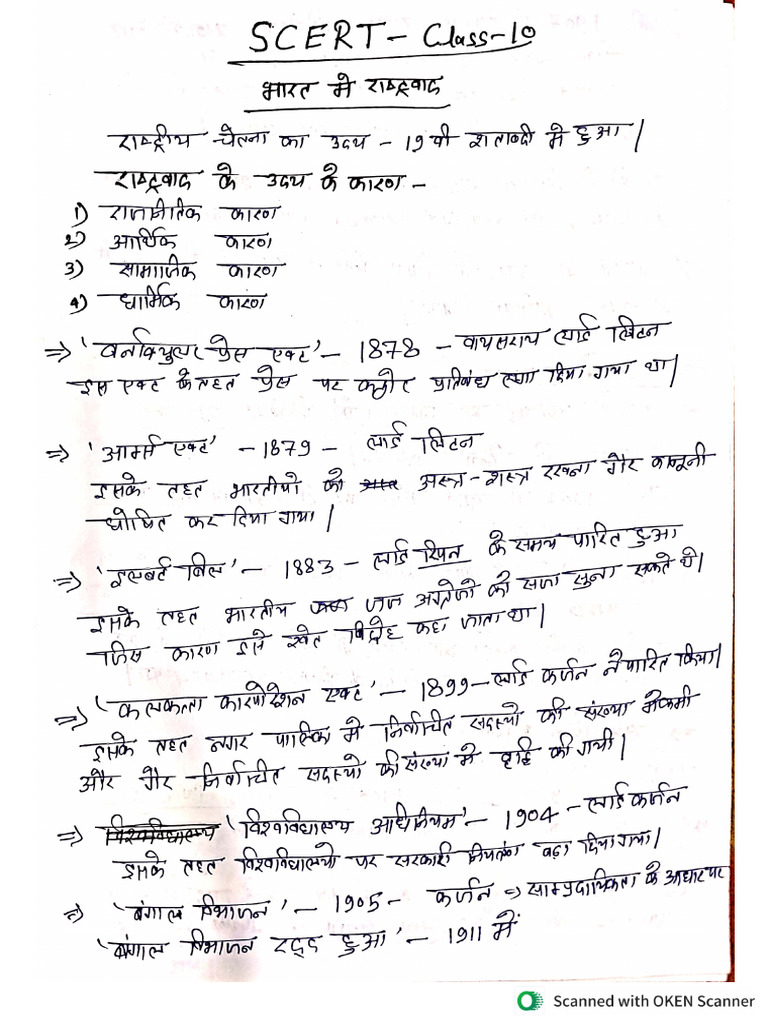 SCERT - Class-10
भारत मे राष्ट्रवाद
राष्ट्रीय चेतना का उदय - 19वी शताब्दी मे हुआ |
राष्ट्रवाद के उदय के कारण -
1) राजनीतिक कारण
2) आर्थिक कारण
3) सामाजिक कारण
4) धार्मिक कारण
⇒ 'वर्नाक्युलर प्रेस एक्ट' - 1878 - वायसराय लार्ड लिटन
इस एक्ट के तहत प्रेस पर कठोर प्रतिबंध लगा दिया गया था |
⇒ 'आर्म्स एक्ट' - 1879 - लार्ड लिटन
इसके तहत भारतीयो को अस्त्र-शस्त्र रखना गैर कानूनी
घोषित कर दिया गया |
⇒ 'इल्बर्ट बिल' - 1883 - लार्ड रिपन के समय पारित हुआ
इसके तहत भारतीय जज अंग्रेजो को सजा सुना सकते थे |
जिस कारण इसे श्वेत विद्रोह कहा जाता था |
⇒ 'कलकत्ता कारपोरेशन एक्ट' - 1899 - लार्ड कर्जन ने पारित किया |
इसके तहत नगर पालिका मे निर्वाचित सदस्यो की संख्या मे कमी
और गैर निर्वाचित सदस्यो की संख्या मे वृद्धि की गयी |
⇒ विश्वविद्यालय 'विश्वविद्यालय अधिनियम' - 1904 - लार्ड कर्जन
इसके तहत विश्वविद्यालयो पर सरकारी नियंत्रण बढ़ा दिया गया |
⇒ 'बंगाल विभाजन' - 1905 - कर्जन ⇒ साम्प्रदायिकता के आधार पर
'बंगाल विभाजन रद्द हुआ' - 1911 में
Scanned with OKEN Scanner